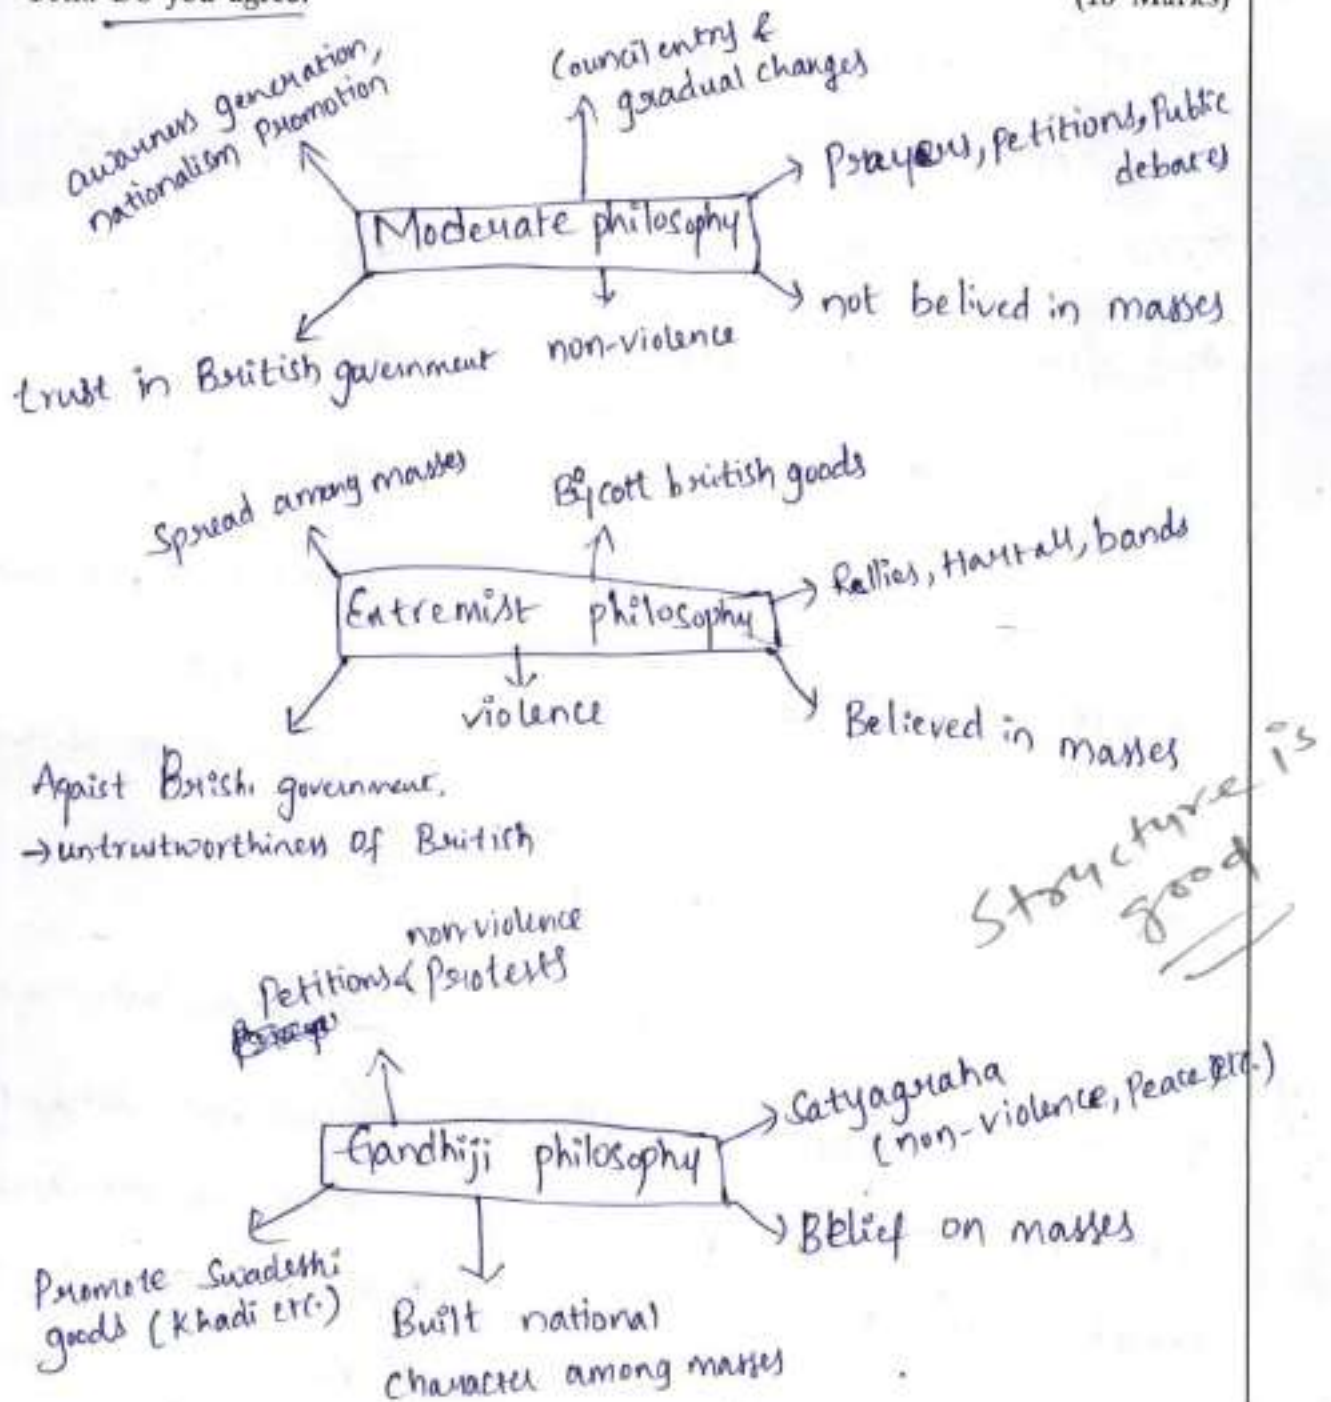 Do you agree.
(10 Marks)
awarness generation,
nationalism promotion
Council entry &
gradual changes
Prayers, petitions, Public
debates
Moderate philosophy
trust in British government
non-violence
not belived in masses
Spread among masses
Boycott british goods
Rallies, Harrtall, bands
Extremist philosophy
violence
Believed in masses
Agaist Brish government.
→ untrustworthiness of British
Structure is
good
non violence
Petitions & Protests
Satyagraha
(non-violence, Peace etc.)
Gandhiji philosophy
Belief on masses
Promote Swadeshi
goods (Khadi etc.)
Built national
character among masses